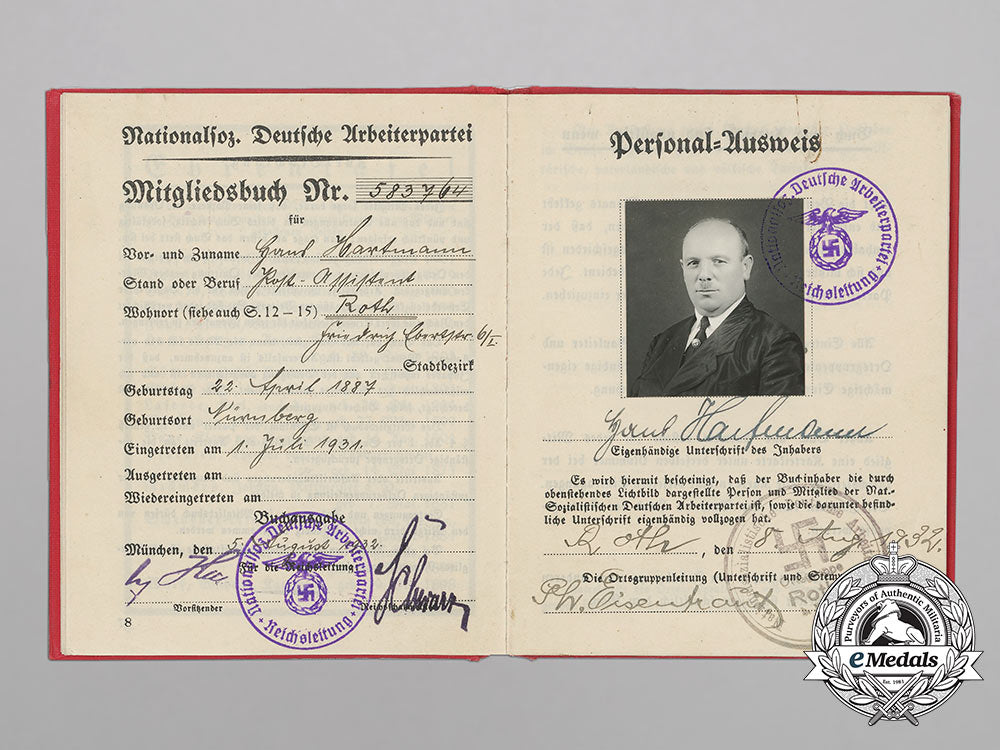 Nationalsoz. Deutsche Arbeiterpartei
Mitgliedsbuch Nr. 583764
für
Vor- und Zuname Hans Hartmann
Stand oder Beruf Post-Assistent
Wohnort (siehe auch S. 12–15) Roth
Friedrich Ebertstr 6/I.
Stadtbezirk
Geburtstag 22. April 1887
Geburtsort Nürnberg
Eingetreten am 1. Juli 1931.
Ausgetreten am
Wiedereingetreten am
Buchausgabe
München, den 5. August 1932.
Für die Reichsleitung
Schwarz
Vorsitzender
8
Nationalsoz. Deutsche Arbeiterpartei
Reichsleitung
Personal-Ausweis
Nationalsoz. Deutsche Arbeiterpartei
Reichsleitung
Hans Hartmann
Eigenhändige Unterschrift des Inhabers
Es wird hiermit bescheinigt, daß der Buchinhaber die durch
obenstehendes Lichtbild dargestellte Person und Mitglied der Nat-
Sozialistischen Deutschen Arbeiterpartei ist, sowie die darunter befind-
liche Unterschrift eigenhändig vollzogen hat.
Roth, den 8. Aug. 1932.
Die Ortsgruppenleitung (Unterschrift und
Purveyors of Authentic Militaria
eMedals
Est. 1981